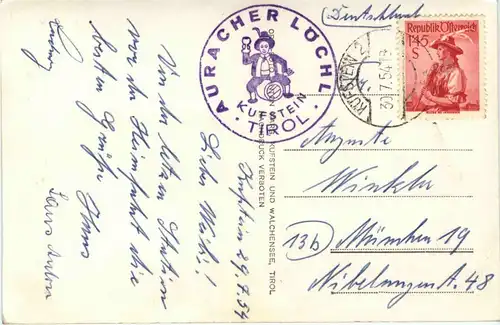 Kufstein 29.7.54
Liebs Weibi!
Von der letzten Station
vor der Heimfahrt die
besten Grüße Hans
Ludwig
AURACHER LÖCHL
KUFSTEIN
· TIROL ·
KUFSTEIN UND WALCHENSEE, TIROL
DRUCK VERBOTEN
(Deutschland)
Republik Österreich
1.45
S
KUFSTEIN 2
30.7.54
Auguste
Winkler
13b München 19
Nibelungen A. 48